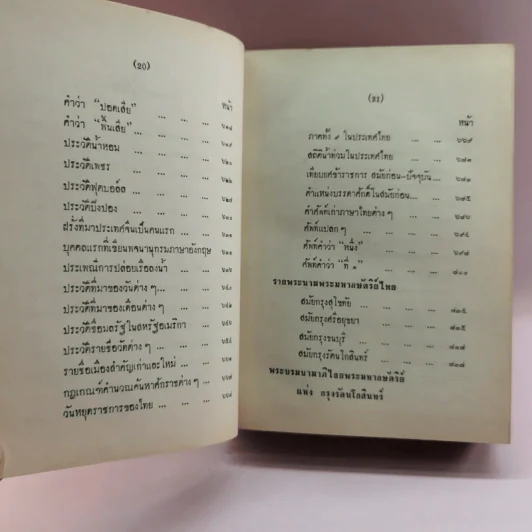 (20)
หน้า
คำว่า "ปอดเสีย" ... ... ...
คำว่า "ฟันเสีย" ... ... ...
ประวัติน้ำหอม ... ... ...
ประวัติเพชร ... ... ...
ประวัติฟุตบอลล์ ... ... ...
ประวัติปิงปอง ... ... ...
ฝรั่งที่มาประเทศจีนเป็นคนแรก ... ...
บุคคลแรกที่เขียนพจนานุกรมภาษาอังกฤษ
ประเพณีการปล่อยเรือลงน้ำ ... ...
ประวัติที่มาของวันต่าง ๆ... ... ...
ประวัติที่มาของเดือนต่าง ๆ ... ...
ประวัติชื่อมลรัฐในสหรัฐอเมริกา ...
ประวัติรายชื่อวัดต่าง ๆ ... ...
รายชื่อเมืองสำคัญเก่าและใหม่ ...
กฎเกณฑ์คำนวณค้นหาศักราชต่าง ๆ ...
วันหยุดราชการของไทย ... ...
(21)
หน้า
ภาคทั้ง ๙ ในประเทศไทย ... ...
สถิติน้ำท่วมในประเทศไทย ... ...
เทียบยศข้าราชการ สมัยก่อน-ปัจจุบัน...
ตำแหน่งบรรดาศักดิ์ในสมัยก่อน...
คำศัพท์เก่าภาษาไทยต่าง ๆ ...
ศัพท์แปลก ๆ ... ... ...
ศัพท์คำว่า "หนึ่ง" ... ...
ศัพท์คำว่า "ที่ ๑" ... ...
รายพระนามพระมหากษัตริย์ไทย
สมัยกรุงสุโขทัย ... ... ...
สมัยกรุงศรีอยุธยา ... ...
สมัยกรุงธนบุรี ... ...
สมัยกรุงรัตนโกสินทร์ ... ...
พระบรมนามาภิไธยพระมหากษัตริย์
แห่ง กรุงรัตนโกสินทร์